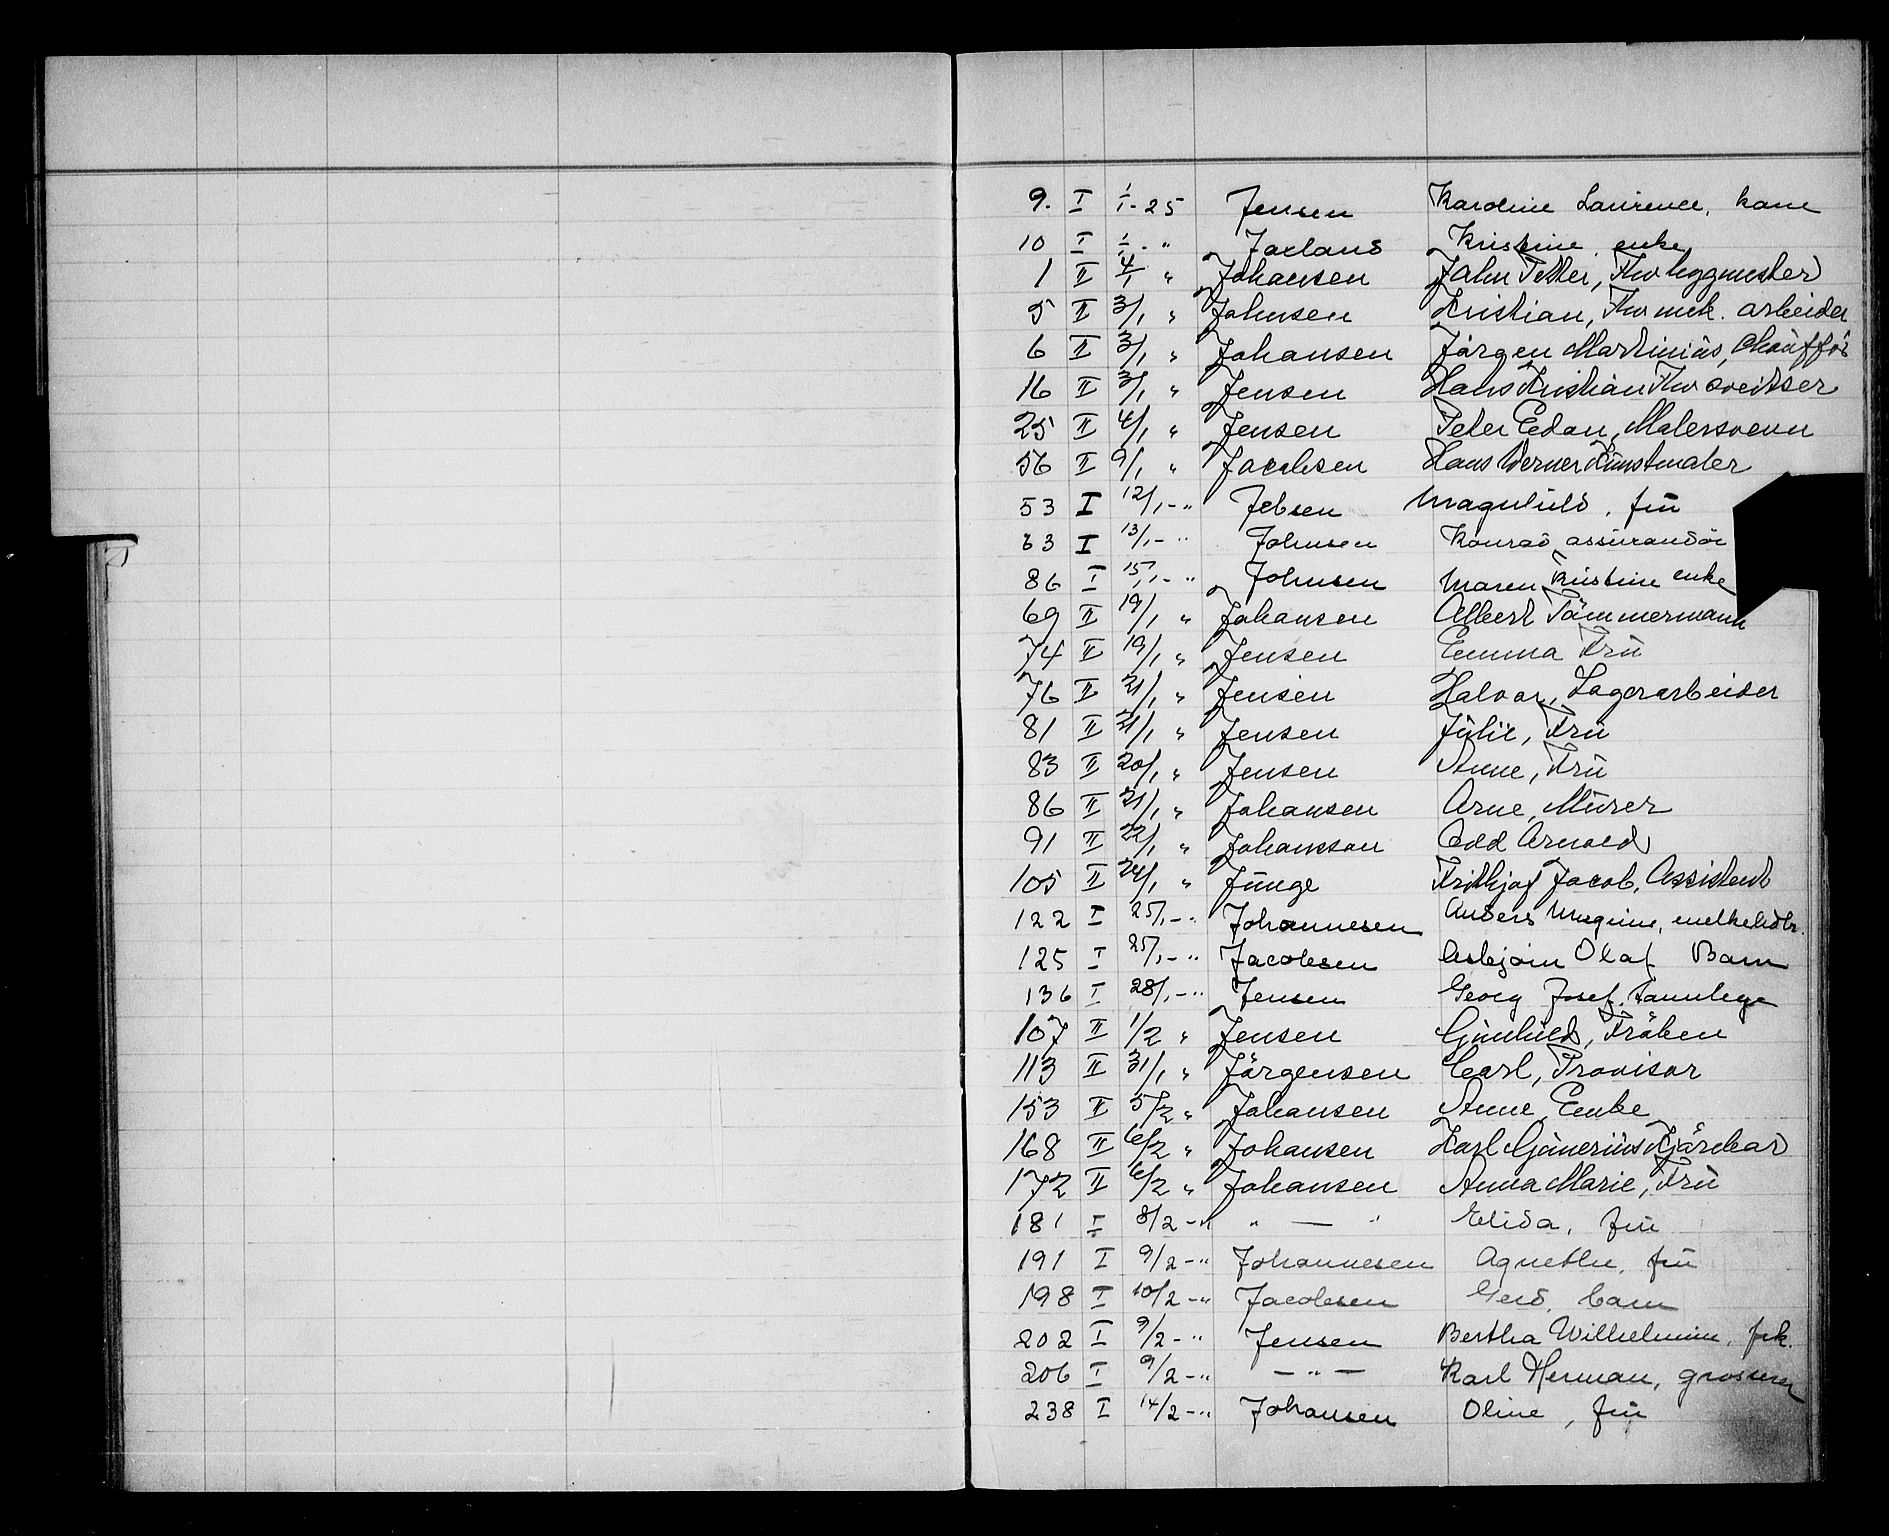 9. I 1/1-25 Jensen Karoline Laurence, kone
10 I 1/1-" Joeland Kristine enke
1 II 4/1 " Johansen John Petter, Fhv byggmester
5 II 3/1 " Johnsen Kristian, Fhv mek. arbeider
6 II 3/1 " Johansen Jörgen Martinius, Chaufför
16 II 3/1 " Jensen Hans Kristian Fhv sveitser
25 II 4/1 " Jensen Peter Edan, Malersvenn
56 II 9/1 " Jacobsen Hans Werner Kunstmaler
53 I 12/1-" Jebsen Magnhild, fru
63 I 13/1-" Johnsen Konrad assurandör
86 I 15/1-" Johnsen Maren Kristine enke
69 II 19/1 " Johansen Albert Tömmermann
74 II 19/1 " Jensen Emma Fru
76 II 21/1 " Jensen Halvor, Lagerarbeider
81 II 21/1 " Jensen Julie, Fru
83 II 20/1 " Jensen Anne, Fru
86 II 21/1 " Johansen Arne, Murer
91 II 22/1 " Johansson Odd Arnold
105 II 24/1 " Junge Frithjof Jacob, Assistent
122 I 25/1-" Johannesen Anders Magnus, melkehdlr.
125 I 25/1-" Jacobsen Asbjörn Olaf Barn
136 I 28/1-" Jensen Georg Josef, tannlege
107 II 1/2 " Jensen Gunhild, Fröken
113 II 31/1 " Jörgensen Carl, Provisor
153 II 5/2 " Johansen Anne, Enke
168 II 6/2 " Johansen Karl Gunerius Kjörekar
172 II 6/2 " Johansen Anna Marie, Fru
181 I 8/2-" " — " Elida, fru
191 I 9/2-" Johannesen Agnethe, fru
198 I 10/2-" Jacobsen Gerd, barn
202 I 9/2-" Jensen Bertha Wilhelmine, frk.
206 I 9/2-" — " — Karl Herman, grosserer
238 I 14/2-" Johansen Oline, fru